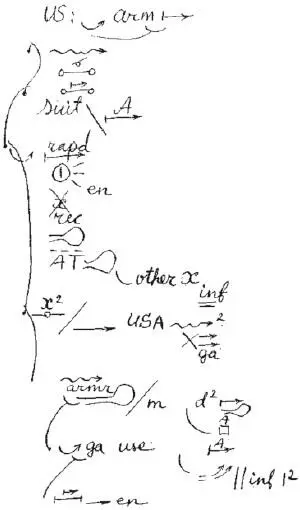 US: arm
suit A
rapd
1
en
x
rec
AT
other x
inf
x² / USA ²
x ga
armr / m d²
A
A
ga use
= // inf 1²
en